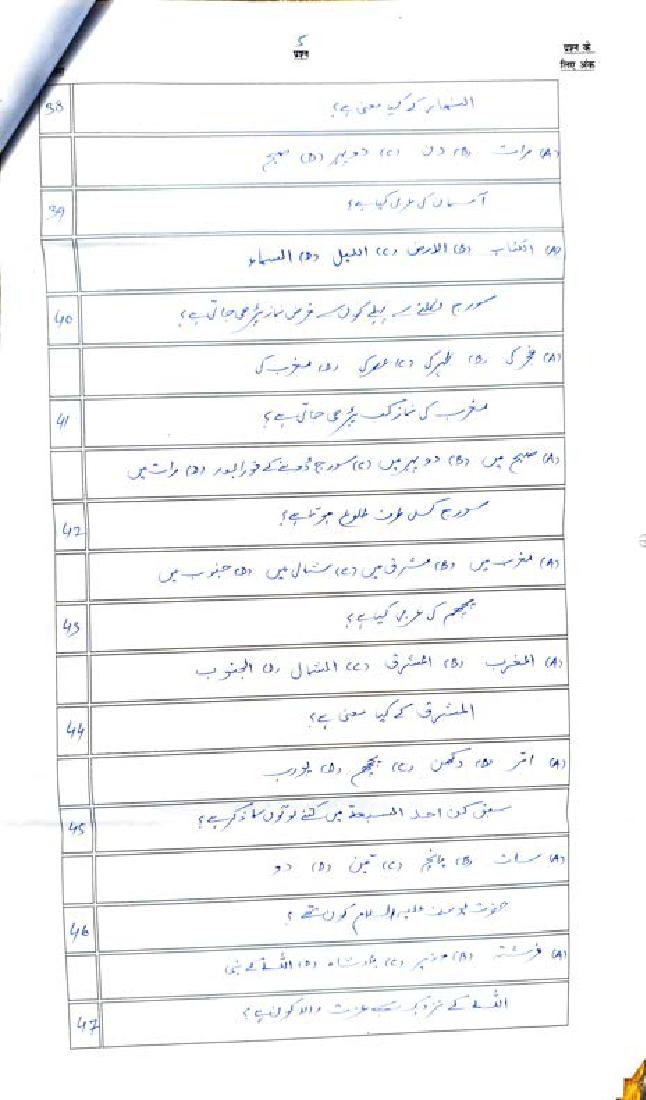 5
प्रश्न
प्रश्न के
लिए अंक
38
النھار کے کیا معنی ہے؟
(A) رات (B) دن (C) دوپہر (D) صبح
39
آسمان کی عربی کیا ہے؟
(A) الکتاب (B) الارض (C) اللیل (D) السماء
40
سورج نکلنے سے پہلے کون سے فرض نماز پڑھی جاتی ہے؟
(A) فجر کی (B) ظہر کی (C) عصر کی (D) مغرب کی
41
مغرب کی نماز کب پڑھی جاتی ہے؟
(A) صبح میں (B) دوپہر میں (C) سورج ڈوبنے کے فورا بعد (D) رات میں
42
سورج کس طرف طلوع ہوتا ہے؟
(A) مغرب میں (B) مشرق میں (C) شمال میں (D) جنوب میں
43
پچھم کی عربی کیا ہے؟
(A) المغرب (B) المشرق (C) الشمال (D) الجنوب
44
المشرق کے کیا معنی ہے؟
(A) اتر (B) دکھن (C) پچھم (D) پورب
45
سبق کن احد السبعة میں کتنے لوگوں کا ذکر ہے؟
(A) سات (B) پانچ (C) تین (D) دو
46
حضرت یوسف علیہ السلام کون تھے؟
(A) فرشتہ (B) وزیر (C) بادشاہ (D) اللہ کے نبی
47
اللہ کے نزدیک سب سے عزت والا کون ہے؟